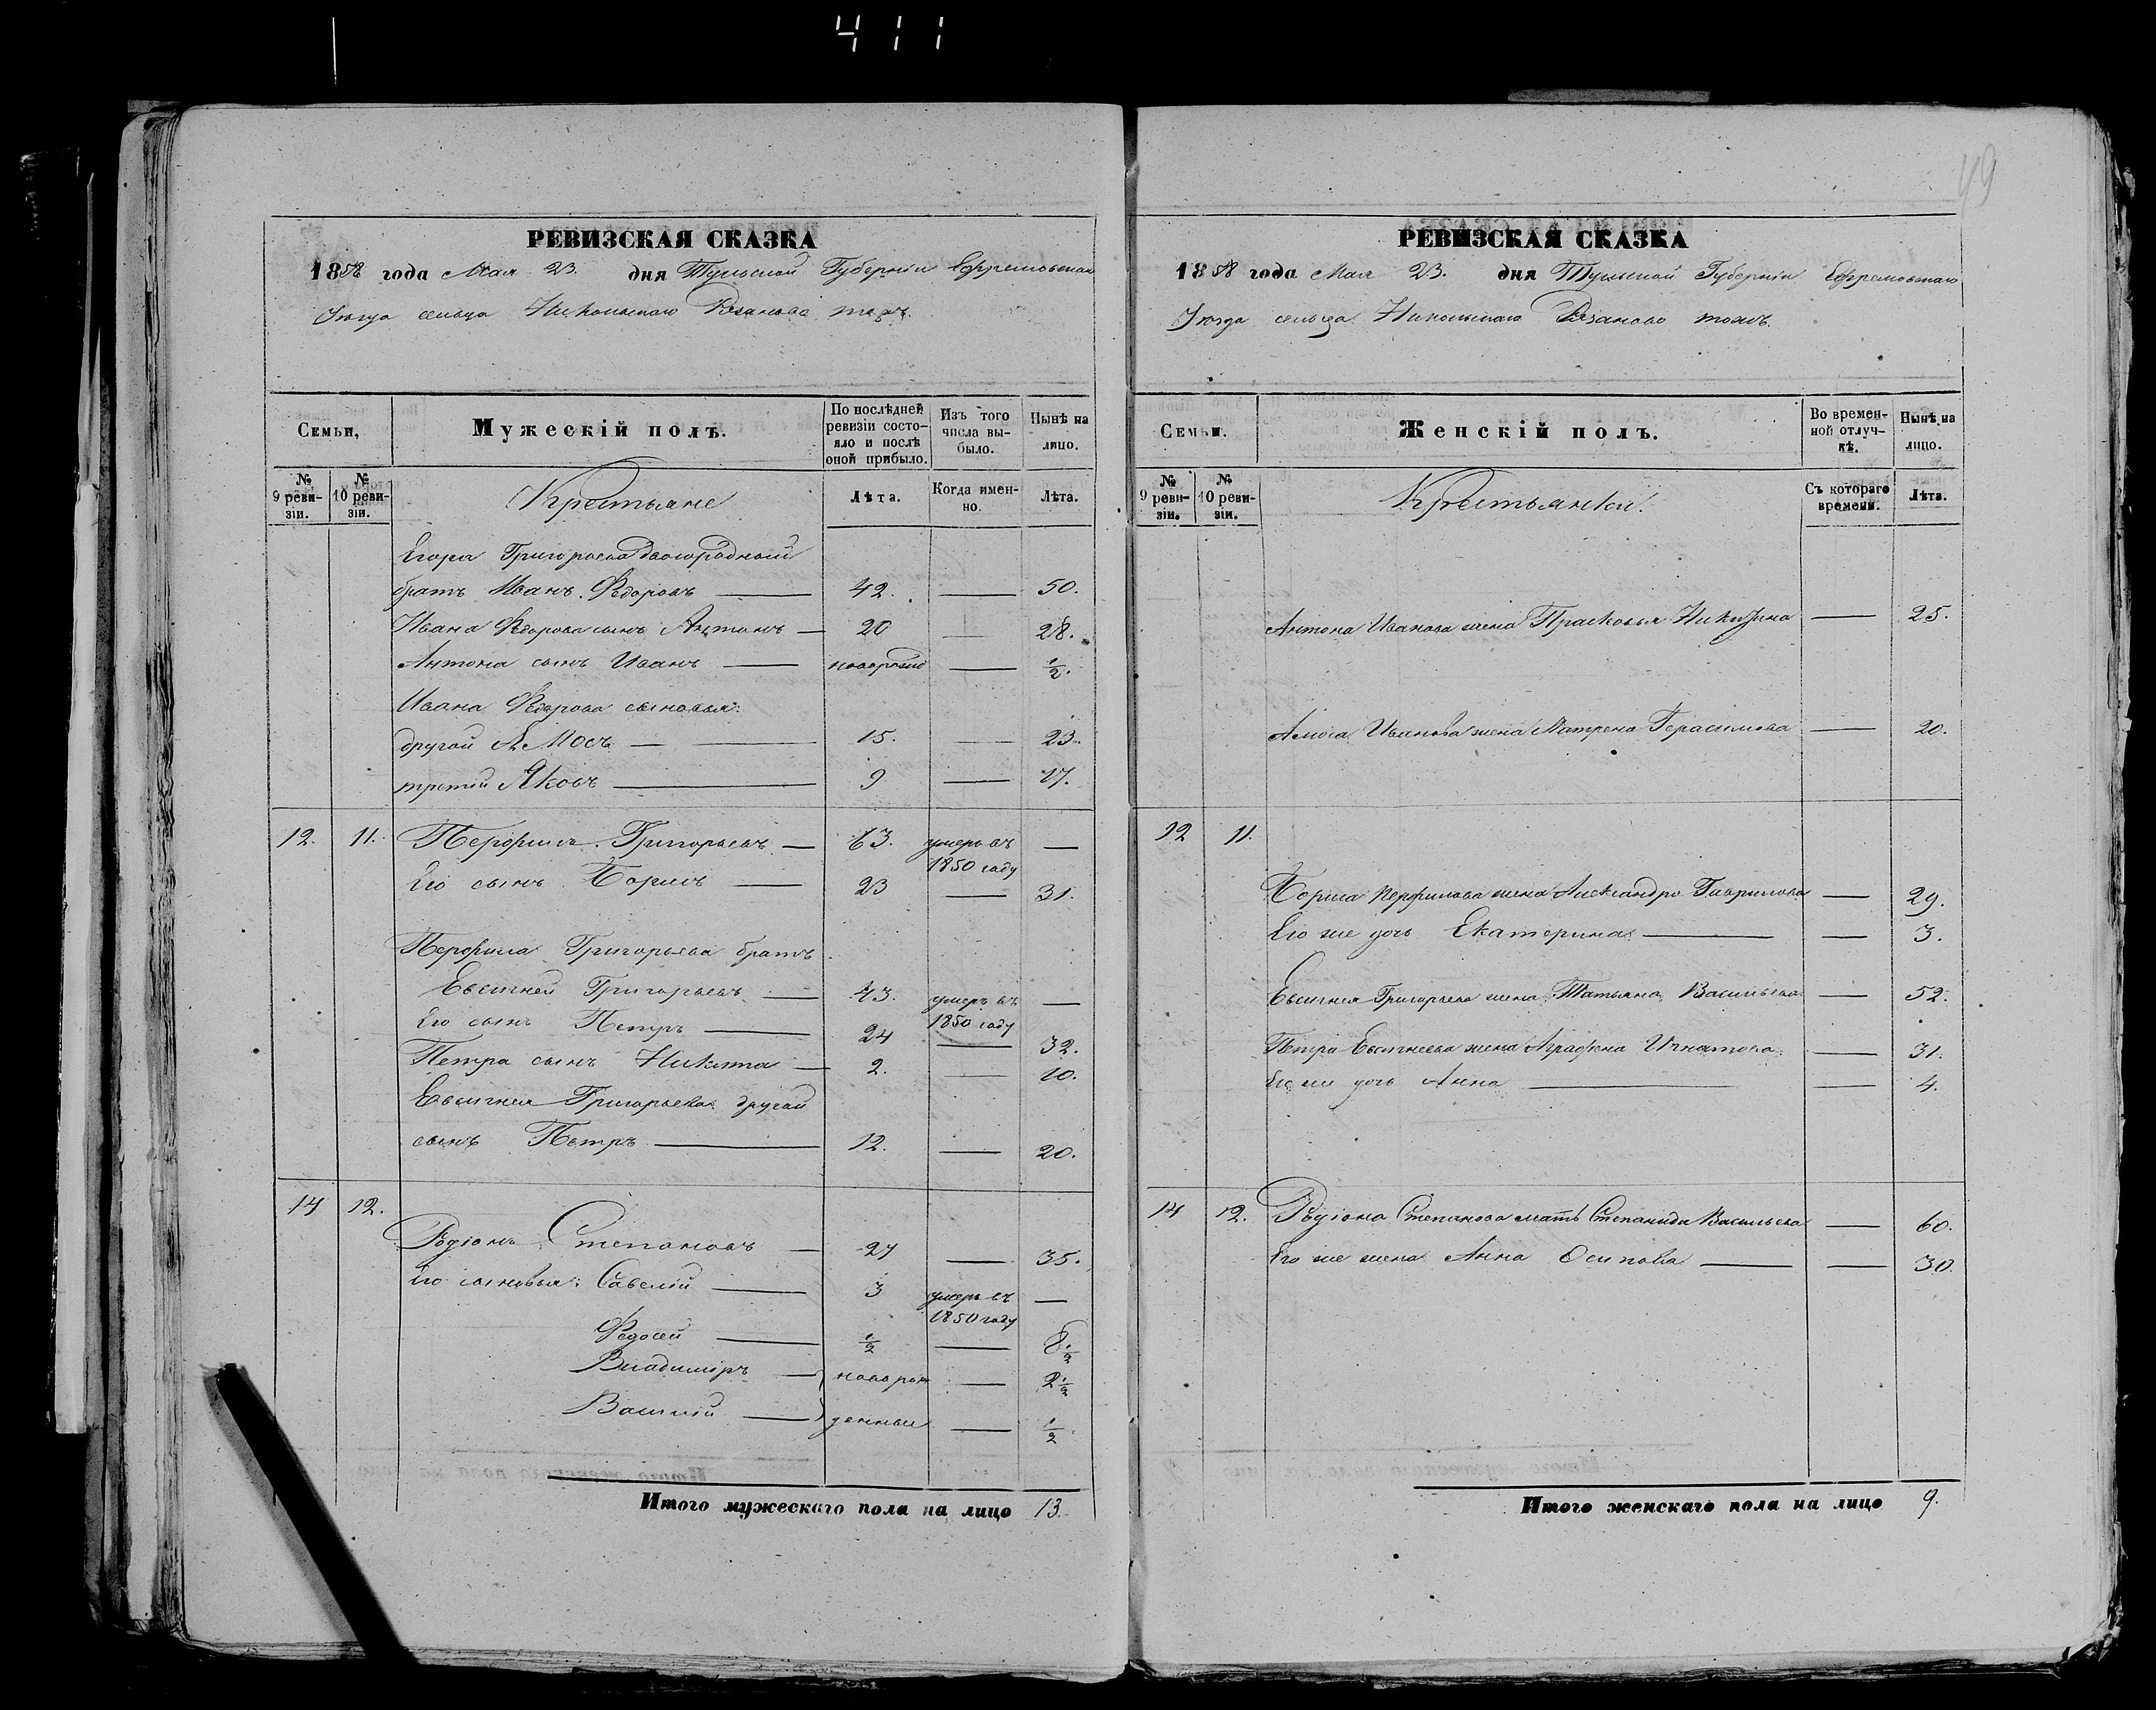 411
49
РЕВИЗСКАЯ СКАЗКА
1858 года Мая 23. дня Тульской Губерніи Ефремовскаго
Уѣзда сельца Никольскаго Рязаново тожъ.
Семьи,
Мужескій полъ.
По послѣдней ревизіи состояло и послѣ оной прибыло.
Изъ того числа выбыло.
Нынѣ на лицо.
№ 9 ревизіи.
№ 10 ревизіи.
Крестьяне
Лѣта.
Когда именно.
Лѣта.
Егора Григорьева двоюродный
братъ Иванъ Ѳедоровъ — 42. — 50.
Ивана Ѳедорова сынъ Антонъ — 20 — 28.
Антона сынъ Иванъ — новорожд — 1/2.
Ивана Ѳедорова сыновья:
другой Амосъ — 15. — 23.
третій Яковъ — 9 — 17.
12. 11. Перфилъ Григорьевъ — 63. умеръ въ 1850 году —
Его сынъ Борисъ — 23 — 31.
Перфила Григорьева братъ
Евсигней Григорьевъ — 43. умеръ въ 1850 году —
Его сынъ Петръ — 24 — 32.
Петра сынъ Никита — 2. — 10.
Евсигнея Григорьева другой
сынъ Петръ — 12. — 20.
14 12.
Родіонъ Степановъ — 27 — 35.
Его сыновья: Савелій — 3 умеръ въ 1850 году —
Ѳедосей — 1/2 — 8 1/2
Владиміръ — новорож — 2 1/2
Василій — денные — 1/2
Итого мужескаго пола на лицо 13.
РЕВИЗСКАЯ СКАЗКА
1858 года Мая 23. дня Тульской Губерніи Ефремовскаго
Уѣзда сельца Никольскаго Рязаново тожъ.
Семьи.
Женскій полъ.
Во временной отлучкѣ.
Нынѣ на лицо.
№ 9 ревизіи.
№ 10 ревизіи.
Крестьянки.
Съ котораго времени.
Лѣта.
Антона Иванова жена Прасковья Никитина — 25.
Амоса Иванова жена Матрена Герасимова — 20.
12 11.
Бориса Перфилова жена Александра Гаврилова — 29.
Его же дочь Екатерина — 3.
Евсигнея Григорьева жена Татьяна Васильева — 52.
Петра Евсигнеева жена Аграфена Игнатова — 31.
Его же дочь Анна — 4.
14 12. Родіона Степанова мать Степанида Васильева — 60.
Его же жена Анна Осипова — 30.
Итого женскаго пола на лицо 9.